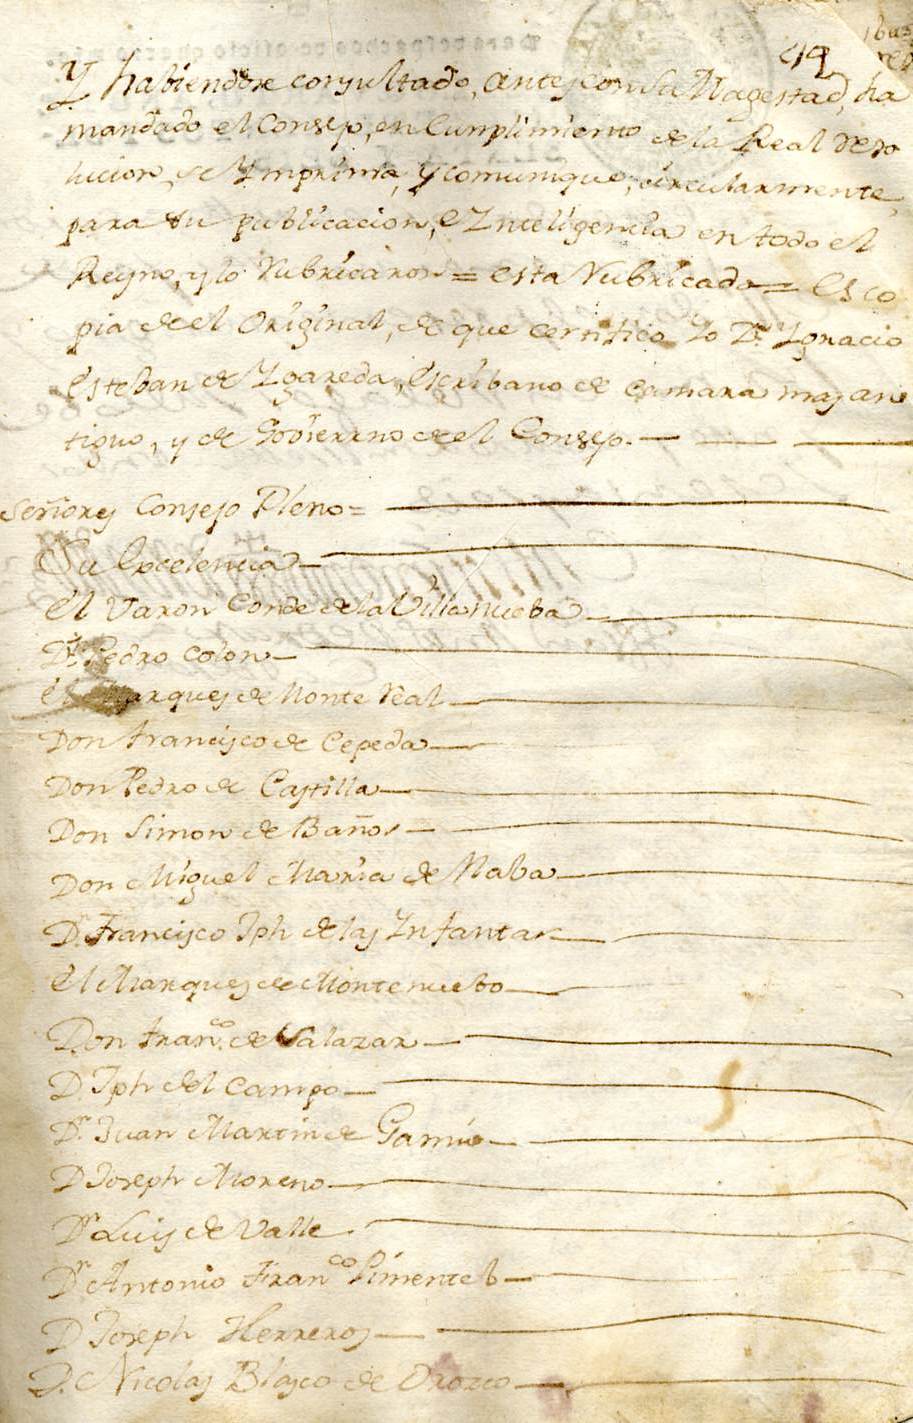 42
Y habiendose consultado, antes con Su Magestad, ha
mandado el Consejo, en Cumplimiento de la Real reso
lucion, se Ymprima, y comunique, circularmente,
para su publicacion, e Ynteligencia en todo el
Reyno, y lo rubricaron = esta rubricado = es co
pia de el Original, de que certifico Yo Dn. Ygnacio
Esteban de Ygareda, Escribano de Camara mas an
tiguo, y de Govierno de el Consejo.
Señores Consejo Pleno =
Su Excelencia
El Varon Conde de la Villanueba
Dn. Pedro Colon
El Marques de Monte Real
Don Francisco de Cepeda
Don Pedro de Castilla
Don Simon de Baños
Don Miguel Maria de Naba
Dn. Francisco Jph de las Ynfantas
El Marques de Montenuebo
Don Franco. de Salazar
D. Jph del Campo
Dn. Juan Martin de Gamio
D Joseph Moreno
Dn Luis de Valle
Dn Antonio Franco Pimentel
D Joseph Herreros
D. Nicolas Blasco de Orozco